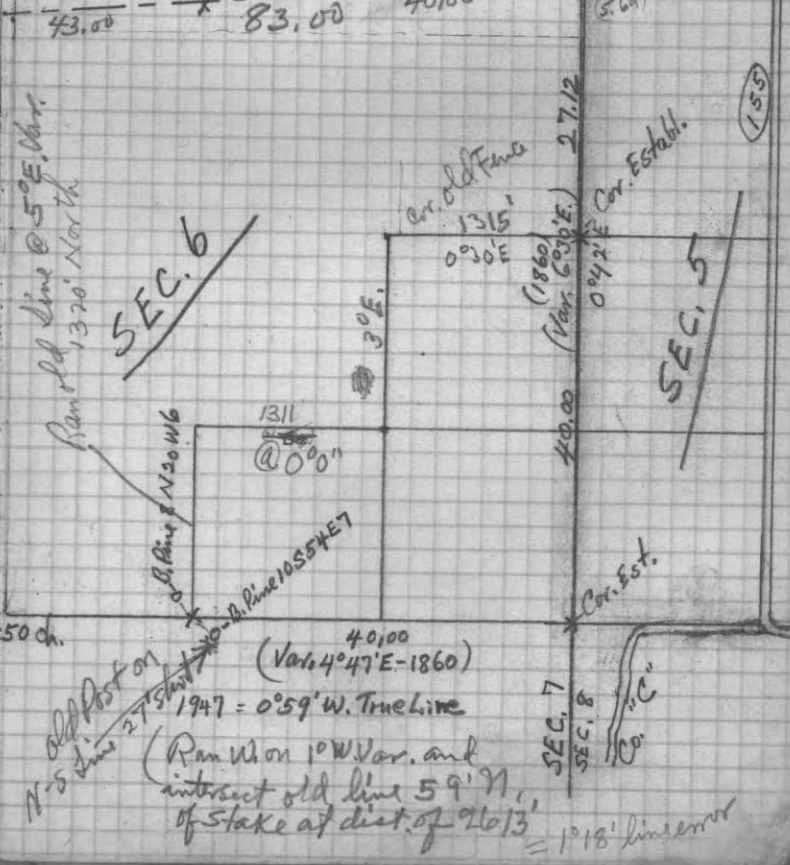 43.00
83.00
40,00
27.12
155
Ran old Line @ -5°E. Var.
1320' North
SEC. 6
Cor. old Fence
1315'
0°30'E
3°E.
(1860)
(Var. 6°30'E.)
Cor. Establ.
0°42'E
SEC. 5
1311
@ 0°0"
40.00
B. Pine 8 N20W6
B. Pine 10 S54E7
Cor. Est.
50 ch.
40,00
(Var. 4°47'E-1860)
1947 = 0°59'W. True Line
Old Post on
N-S Line 27' Short
(Ran W. on 1°W. Var. and
intersect old line 59' N.
of Stake at dist. of 2613'
= 1°18' line error
SEC. 7
SEC. 8
Co. "C"